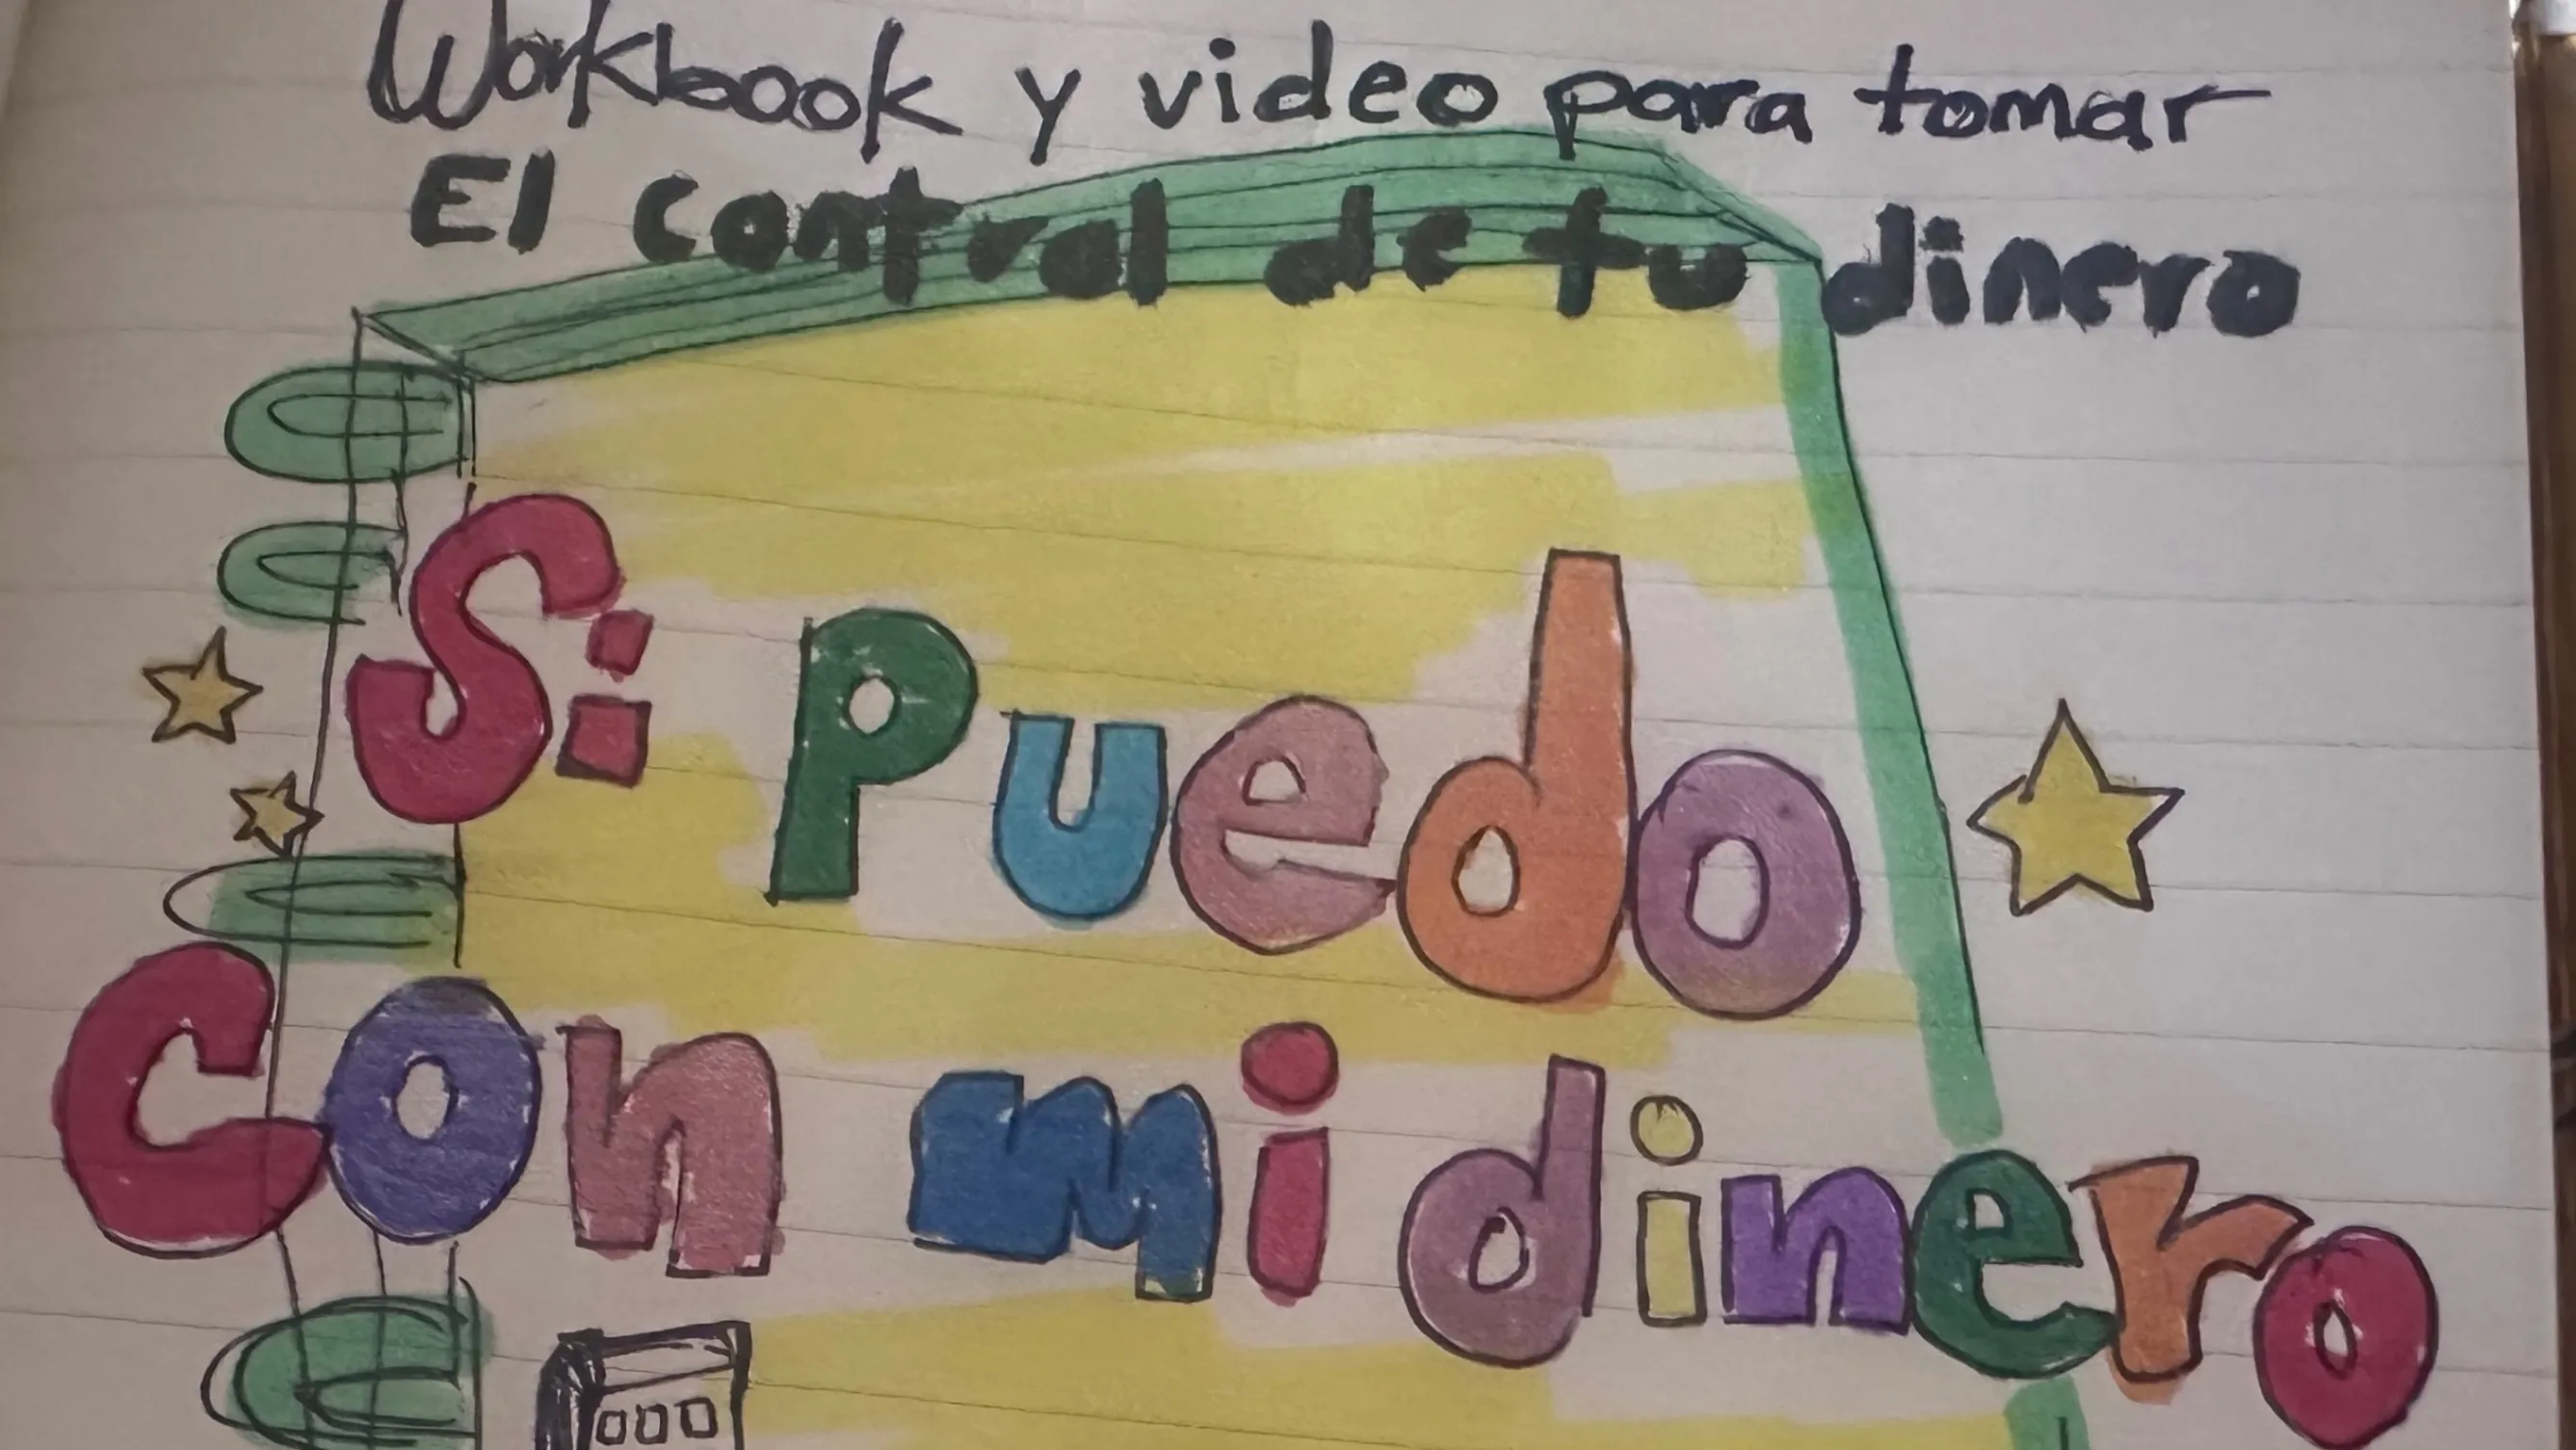 Workbook y video para tomar
El control de tu dinero
Si Puedo
Con mi dinero